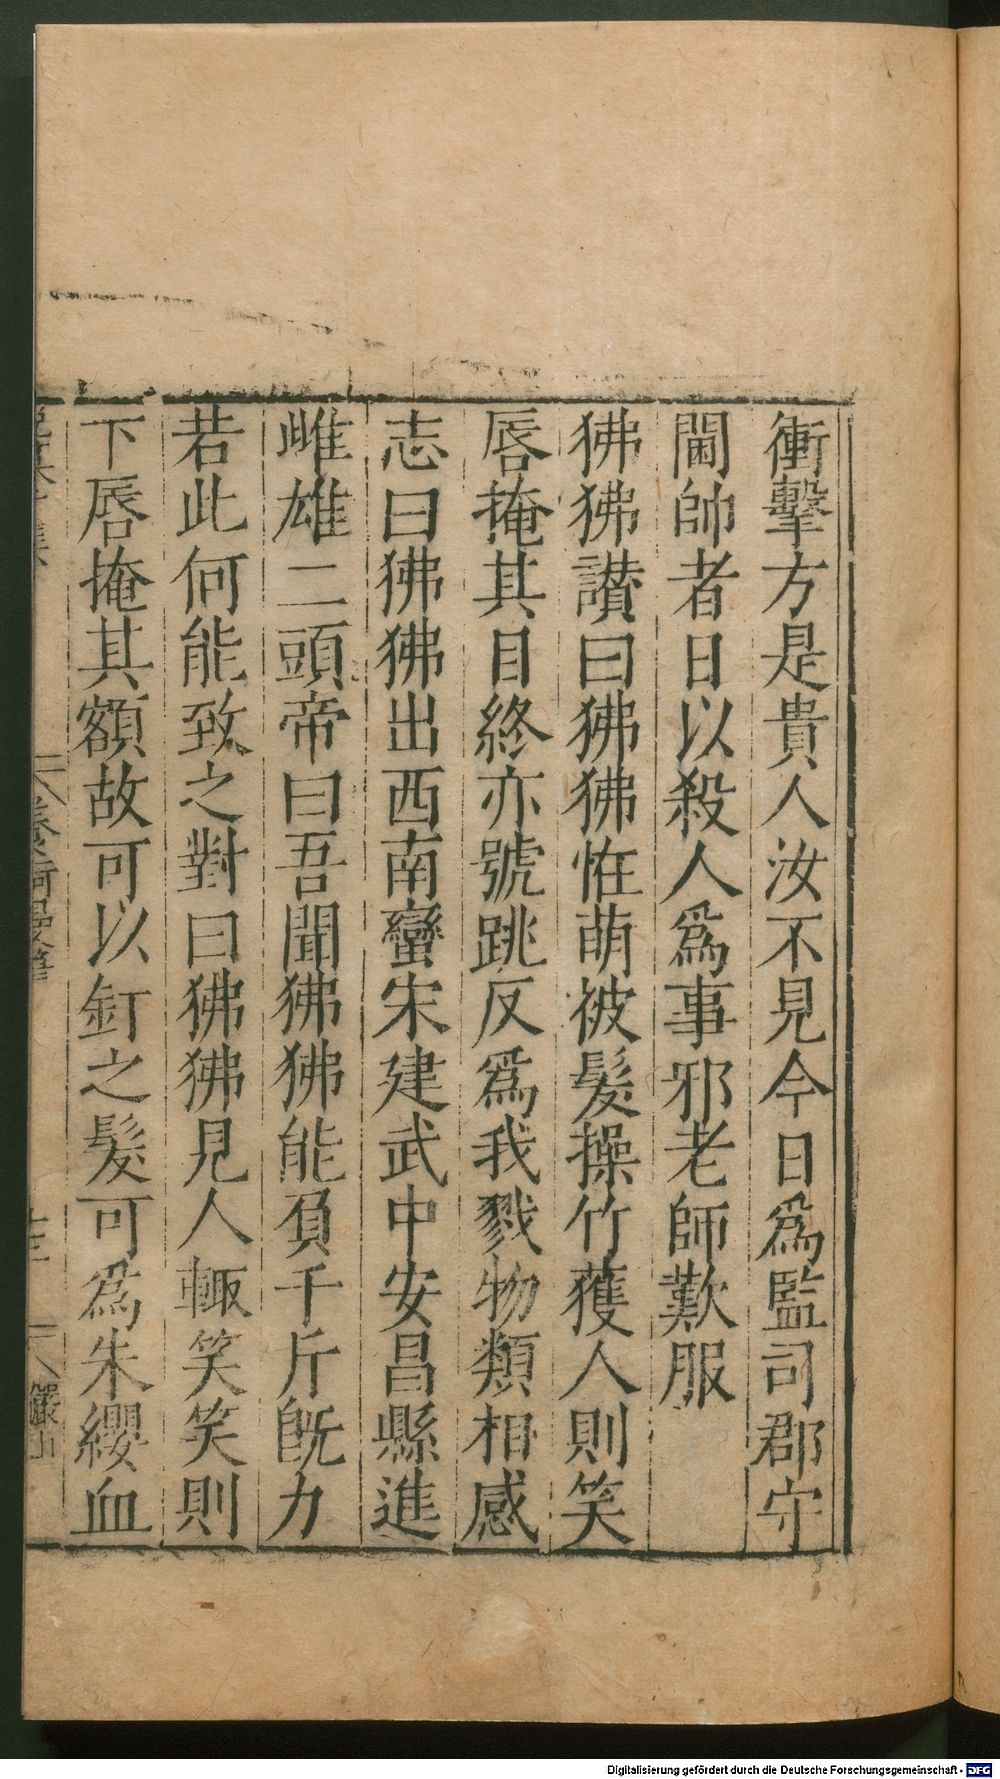 衝擊方是貴人汝不見今日爲監司郡守
閫帥者日以殺人爲事邪老師歎服
狒狒讃曰狒狒恠萌被髮操竹獲人則笑
唇掩其目終亦號跳反爲我戮物類相感
志曰狒狒出西南蠻宋建武中安昌縣進
雌雄二頭帝曰吾聞狒狒能負千斤旣力
若此何能致之對曰狒狒見人輒笑笑則
下唇掩其額故可以釘之髮可爲朱纓血
Digitalisierung gefördert durch die Deutsche Forschungsgemeinschaft - DFG